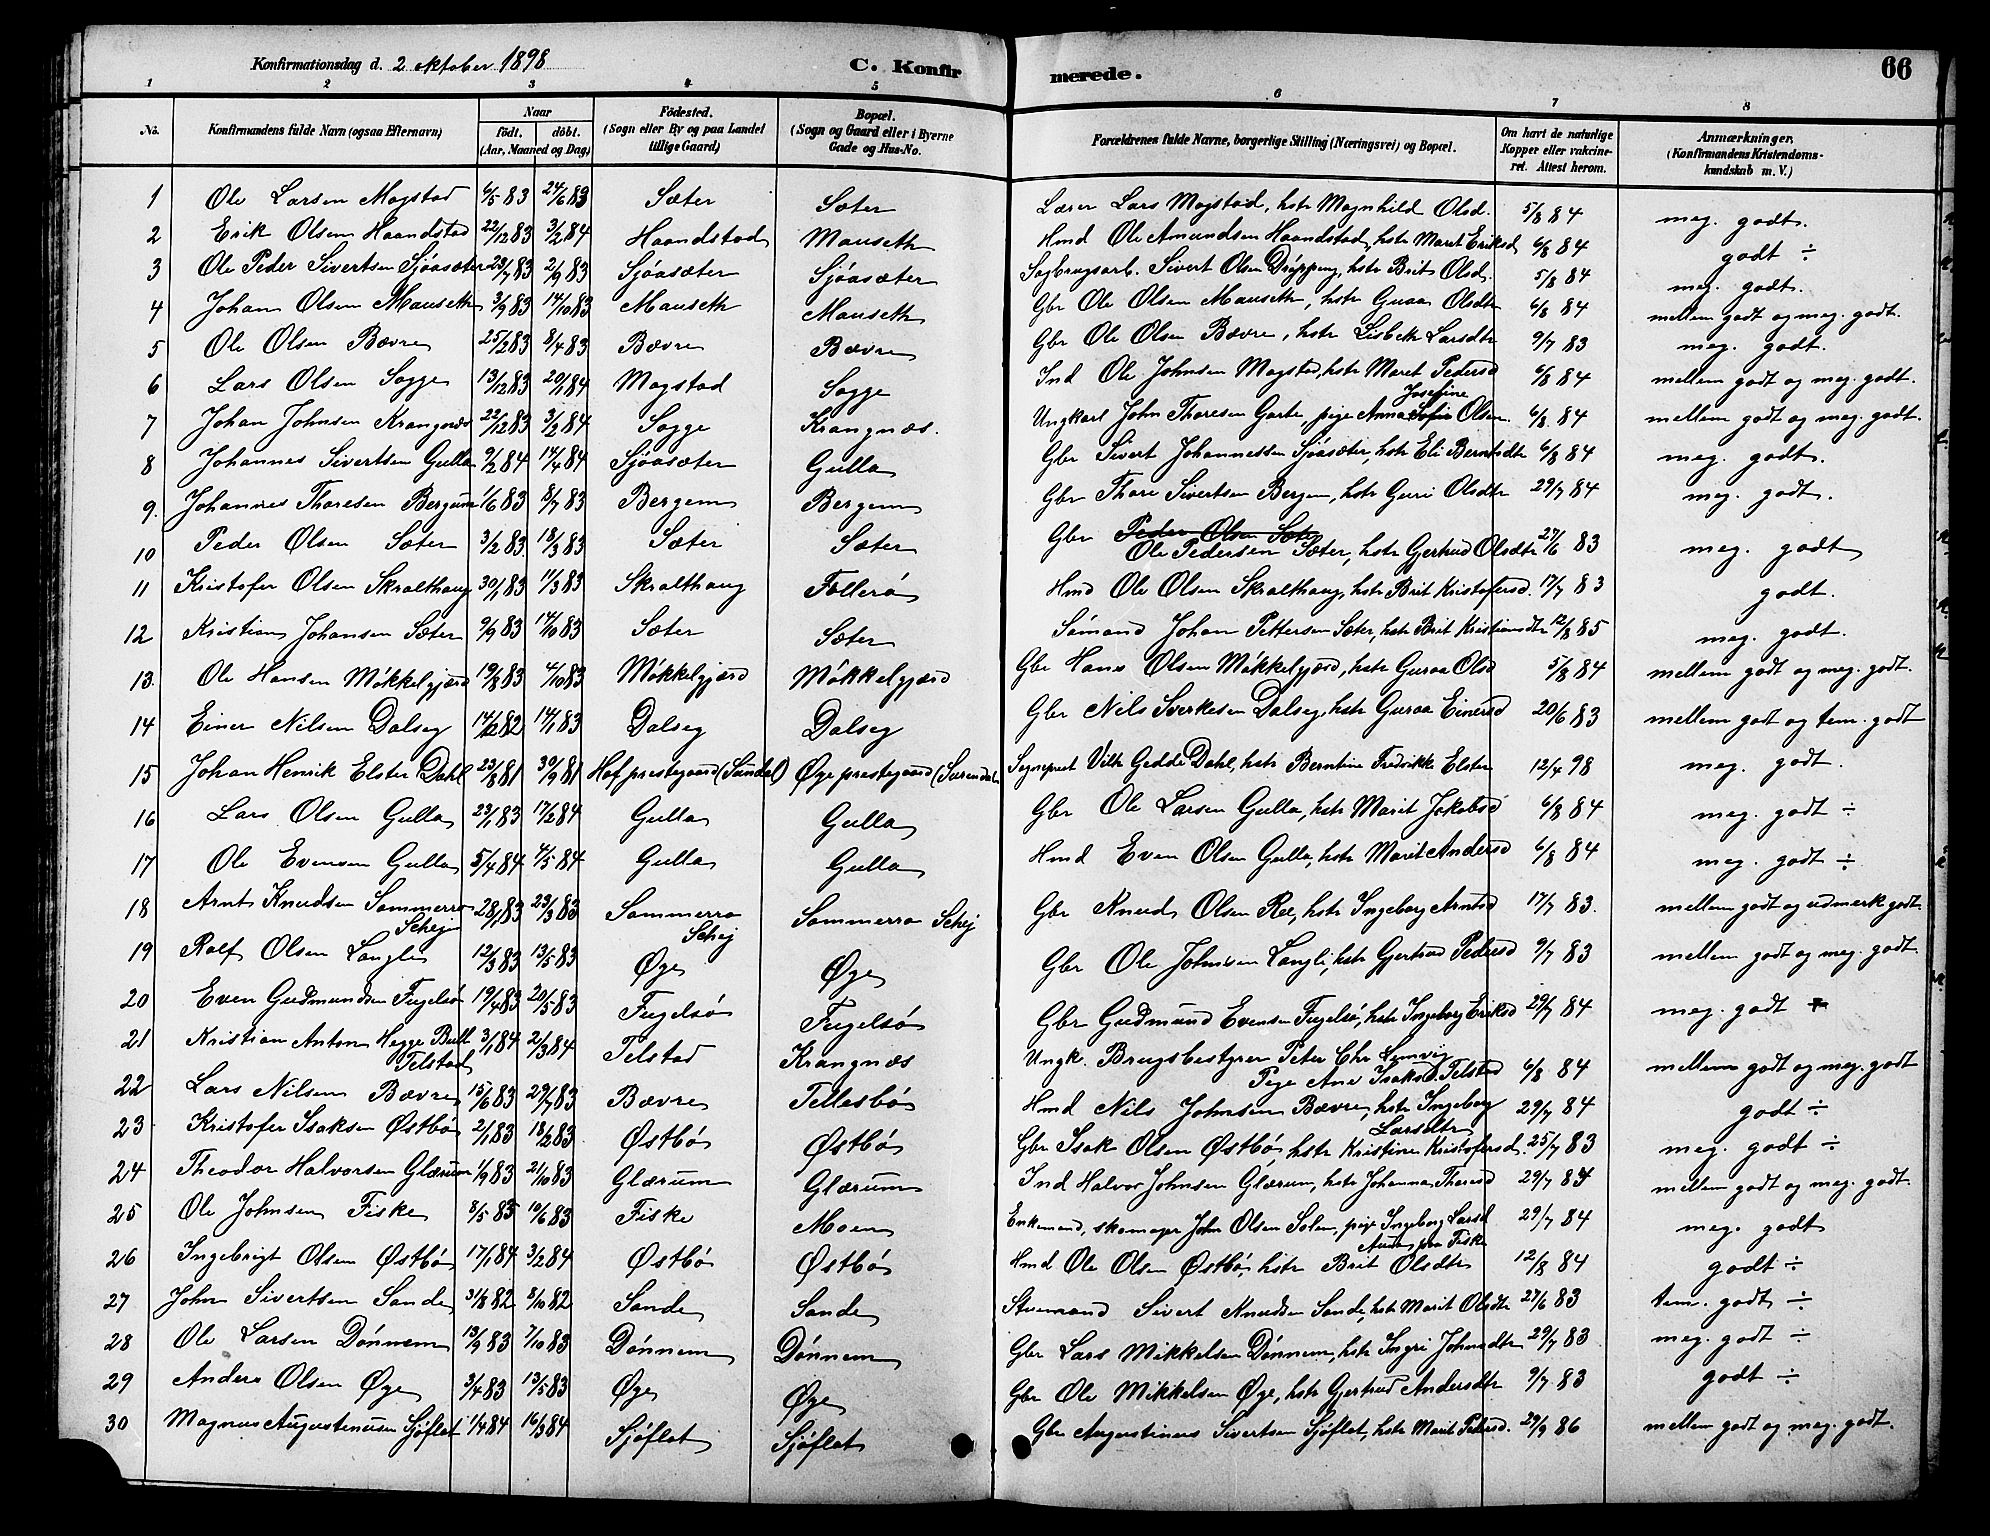 Konfirmationsdag d. 2 oktober 1898 C. Konfirmerede. 66
1 2 3 4 5 6 7 8
No. Konfirmandens fulde Navn (ogsaa Efternavn) Naar födt. döbt. (Aar, Maaned og Dag) Födested. (Sogn eller By og paa Landet tillige Gaard) Bopæl. (Sogn og Gaard eller i Byerne Gade og Hus-No. Forældrenes fulde Navne, borgerlige Stilling (Næringsvei) og Bopæl. Om havt de naturlige Kopper eller vakcineret. Attest herom. Anmærkninger. (Konfirmandens Kristendomskundskab m. V.)
1 Ole Larsen Magstad 6/5 83 24/6 83 Sæter Sæter Lærer Lars Magstad, hstr Magnhild Olsd. 5/8 84 meg. godt.
2 Erik Olsen Haandstad 22/12 83 3/2 84 Haandstad Mauseth Hmd Ole Amundsen Haandstad, hstr Marit Eriksd 6/8 84 godt ÷
3 Ole Peder Sivertsen Sjöasæter 23/7 83 2/9 83 Sjöasæter Sjöasæter Sagbrugsarb. Sivert Olsen Dröpping, hstr Brit Olsd. 5/8 84 meg. godt.
4 Johan Olsen Mauseth 3/9 83 14/10 83 Mauseth Mauseth Gbr Ole Olsen Mauseth, hstr Guraa Olsdtr 6/8 84 mellem godt og meg. godt.
5 Ole Olsen Bævre 25/2 83 8/4 83 Bævre Bævre Gbr Ole Olsen Bævre, hstr Lisbeth Larsdtr 9/7 83 meg. godt.
6 Lars Olsen Sogge 13/12 83 20/1 84 Magstad Sogge Ind Ole Johnsen Magstad, hstr Marit Pedersd 6/8 84 mellem godt og meg. godt.
7 Johan Johnsen Krangnæs 22/12 83 3/2 84 Sogge Krangnæs. Ungkarl John Thoresen Garte, pige Anna Sofie Josefine Olsen. 6/8 84 mellem godt og meg. godt.
8 Johannes Sivertsen Gulla 9/2 84 14/4 84 Sjöasæter Gulla Gbr Sivert Johannessen Sjöasæter, hstr Eli Berntsdtr 6/8 84 meg. godt.
9. Johannes Thoresen Bergem 1/6 83 8/7 83 Bergem Bergem Gbr Thore Sivertsen Bergem, hstr Guri Olsdtr 29/7 84 meg. godt.
10 Peder Olsen Sæter 3/2 83 18/3 83 Sæter Sæter Gbr Peder Olsen Sæter
Ole Pedersen Sæter, hstr Gjertrud Olsdtr 27/6 83 meg. godt
11 Kristofer Olsen Skralthaug 30/1 83 11/3 83 Skralthaug Follerö Hmd Ole Olsen Skralthaug, hstr Brit Kristofersd. 17/7 83 godt.
12 Kristian Johansen Sæter 9/9 83 14/10 83 Sæter Sæter Sömand Johan Pettersen Sæter, hstr Brit Kristiansdtr 12/8 85 meg. godt.
13. Ole Hansen Mökkelgjærd 19/8 83 4/10 83 Mökkelgjærd Mökkelgjærd Gbr Hans Olsen Mökkelgjærd, hstr Guraa Olsd 5/8 84 mellem godt og meg. godt.
14 Einer Nilsen Dalseg 14/12 82 14/1 83 Dalseg Dalseg Gbr Nils Sverkesen Dalseg, hstr Guraa Einersd 20/6 83 mellem godt og tem. godt
15 Johan Henrik Elster Dahl 23/8 81 30/9 81 Hof prestegaard (Sundal) Øye prestegaard (Surendal Sogneprest Vilh Gedde Dahl, hstr Berntine Fredrikke Elster 12/4 98 meg. godt.
16 Lars Olsen Gulla 23/1 83 17/2 84 Gulla Gulla Gbr Ole Larsen Gulla, hstr Marit Jakobsd 6/8 84 meg. godt ÷
17 Ole Evensen Gulla 5/4 84 4/5 84 Gulla Gulla Hmd Even Olsen Gulla, hstr Marit Andersd 6/8 84 meg. godt ÷
18 Arnt Knudsen Sommerro Schej 28/1 83 23/3 83 Sommerro Schej Sommerro Schej Gbr Knud Olsen Ree, hstr Ingeborg Arntsd 17/7 83. mellem godt og udmerk godt.
19 Rolf Olsen Langli 12/3 83 13/5 83 Øye Øye Gbr Ole Johnsen Langli, hstr Gjertrud Pedersd 9/7 83 mellem godt og meg. godt
20 Even Gudmundsen Fugelsö 19/4 83 20/5 83 Fugelsö Fugelsö Gbr Gudmund Evensen Fugelsö, hstr Ingeborg Eriksd 29/7 84 meg. godt
21 Kristian Anton Hegge Bull Telstad 3/1 84 2/3 84 Telstad Krangnæs Ungk. Brugsbestyrer Peter Chr Lemvig
Pige Ane Isaksd. Telstad 6/8 84 mellem godt og meg. godt
22 Lars Nilsen Bævre 15/6 83 29/7 83 Bævre Tellesbö Hmd Nils Johnsen Bævre, hstr Ingeborg Larsdtr 29/7 84 godt ÷
23 Kristofer Isaksen Østbö 2/1 83 18/2 83 Østbö Østbö Gbr Isak Olsen Østbö hstr Kristine Kristofersd. 25/7 83 meg. godt ÷
24 Theodor Halvorsen Glærum 1/9 83 21/10 83 Glærum Glærum Ind Halvor Johnsen Glærum, hstr Johanna Thoresd 29/7 84 mellem godt og meg. godt
25 Ole Johnsen Fiske 8/5 83 10/6 83 Fiske Moen Enkemand, skomager John Olsen Solem, pige Ingeborg Larsd Aune paa Fiske 29/7 84 meg. godt
26 Ingebrigt Olsen Østbö 17/1 84 3/2 84 Østbö Østbö Hmd Ole Olsen Østbö, hstr Brit Olsdtr 12/8 84 godt ÷
27 John Sivertsen Sande 31/8 82 8/10 82 Sande Sande Stuemand Sivert Knudsen Sande, hstr Marit Olsdtr 27/6 83 tem. godt ÷
28 Ole Larsen Dönnem 13/9 83 7/10 83 Dönnem Dönnem Gbr Lars Mikkelsen Dönnem, hstr Ingri Johnsdtr 29/7 83 meg. godt ÷
29 Anders Olsen Øye 3/4 83 13/5 83 Øye Øye Gbr Ole Mikkelsen Øye, hstr Gjertrud Andersdtr 9/7 83 godt ÷
30 Magnus Augustinusen Sjöflot 1/4 84 16/3 84 Sjöflot Sjöflot Gbr Augustinus Sivertsen Sjöflot, hstr Marit Pedersd. 29/9 86 mellem godt og meg. godt.